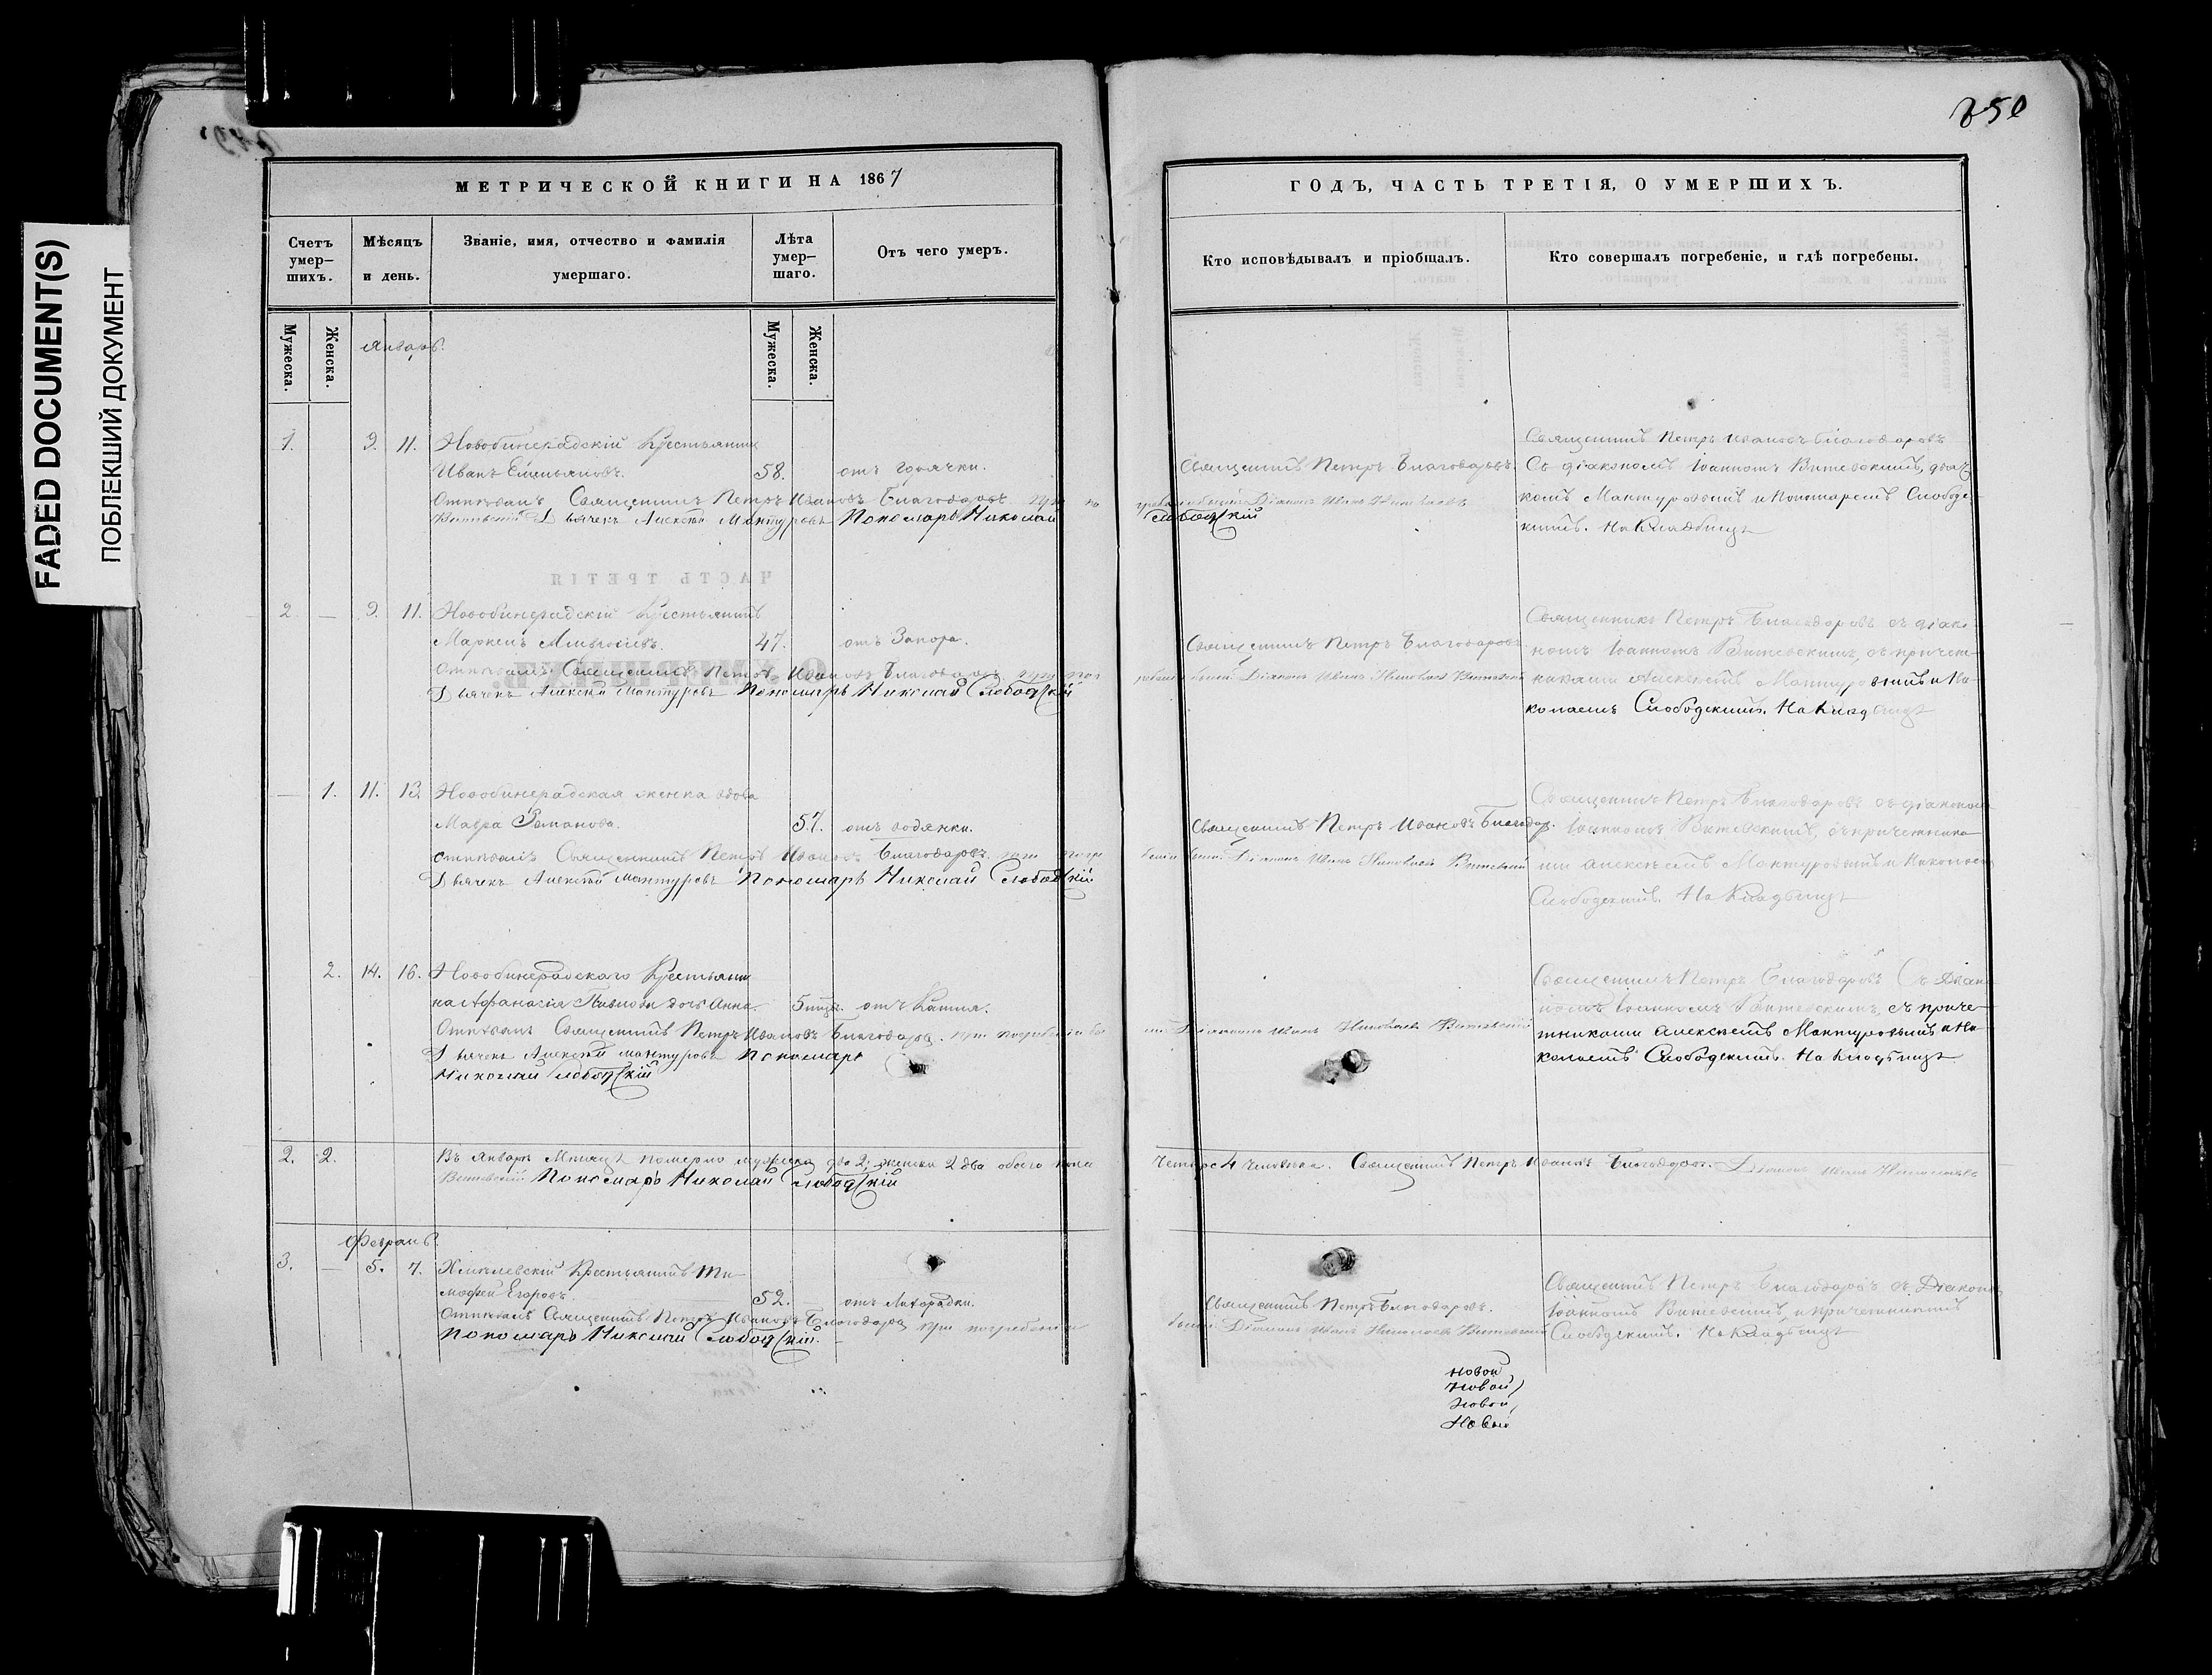 FADED DOCUMENT(S)
ПОБЛЕКШИЙ ДОКУМЕНТ
МЕТРИЧЕСКОЙ КНИГИ НА 1867
Счетъ умер-шихъ.
Мѣсяцъ и день.
Званіе, имя, отчество и фамилія умершаго.
Лѣта умер-шаго.
Отъ чего умеръ.
Мужеска.
Женска.
Мужеска.
Женска.
Январь.
1. 9. 11. Новобинарадскій Крестьянинъ
Иванъ Емельяновъ. 58. отъ горячки.
Отпѣвалъ Священникъ Петръ Ивановъ Благодаровъ при по
Витевскій Дьячекъ Алексѣй Мантуровъ Пономарь Николай
ЧАСТЬ ТРЕТІЯ
2 — 9. 11. Новобинарадскій Крестьянинъ
Маркелъ 47. отъ Запора.
Отпѣвалъ Священникъ Петръ Ивановъ Благодаровъ при пог
Дьячекъ Алексѣй Мантуровъ Пономарь Николай Слободскій
— 1. 11. 13. Новобинарадская женка вдова
Мавра Романова. 57. отъ водянки.
отпѣвалъ Священникъ Петръ Ивановъ Благодаровъ. при погре
Дьячекъ Алексѣй Мантуровъ Пономарь Николай Слободскій
2. 14. 16. Новобинарадскаго Крестьяни
на Афанасія дочь Анна. 5 отъ Кашля.
Отпѣвалъ Священникъ Петръ Ивановъ Благодаровъ. при погребеніи бы
Дьячекъ Алексѣй Мантуровъ Пономарь
Николай Слободскій
2. 2. Въ Январѣ Мѣсяцѣ померло мужеска два 2, женска 2 два обоего пола
Витевскій Пономарь Николай Слободскій
Февраль.
3. — 5. 7. Хмѣлевскій Крестьянинъ Ти-
мофей Егоровъ. 52. отъ Лихорадки.
Отпѣвалъ Священникъ Петръ Ивановъ Благодаровъ при погребеніи
Пономарь Николай Слободскій.
250
ГОДЪ, ЧАСТЬ ТРЕТІЯ, О УМЕРШИХЪ.
Кто исповѣдывалъ и пріобщалъ.
Кто совершалъ погребеніе, и гдѣ погребены.
Священникъ Петръ Благодаровъ.
гребеніи былъ Діаконъ Иванъ Николаевъ
Слободскій
Священникъ Петръ Ивановъ Благодаровъ
Съ діакономъ Іоанномъ Витевскимъ, дьяч
комъ Мантуровымъ и Пономаремъ Слободс-
кимъ. На Кладбищѣ
Священникъ Петръ Благодаровъ
ребеніи былъ Діаконъ Иванъ Николаевъ Витевскій
Священникъ Петръ Благодаровъ съ діако-
номъ Іоанномъ Витевскимъ, съ причет-
никами Алексѣемъ Мантуровымъ и Ни-
колаемъ Слободскимъ. На Кладбищѣ
Священникъ Петръ Ивановъ Благодар.
беніи былъ Діаконъ Иванъ Николаевъ Витевскій
Священникъ Петръ Благодаровъ съ діакономъ
Іоанномъ Витевскимъ, съ причетника-
ми Алексѣемъ Мантуровымъ и Николаемъ
Слободскимъ. На Кладбищѣ
лъ Діаконъ Иванъ Николаевъ Витевскій
Священникъ Петръ Благодаровъ Съ Діако
номъ Іоанномъ Витевскимъ, съ приче-
тниками Алексѣемъ Мантуровымъ и Ни-
колаемъ Слободскимъ. На Кладбищѣ
четыре 4 человека. Священникъ Петръ Ивановъ Благодаров. Діаконъ Иванъ Николаевъ
Священникъ Петръ Благодаровъ.
былъ Діаконъ Иванъ Николаевъ Витевскій
Священникъ Петръ Благодаровъ съ Діакономъ
Іоанномъ Витевскимъ, и причетникомъ
Слободскимъ. На Кладбищѣ
новой
Новой
Новой
Новый